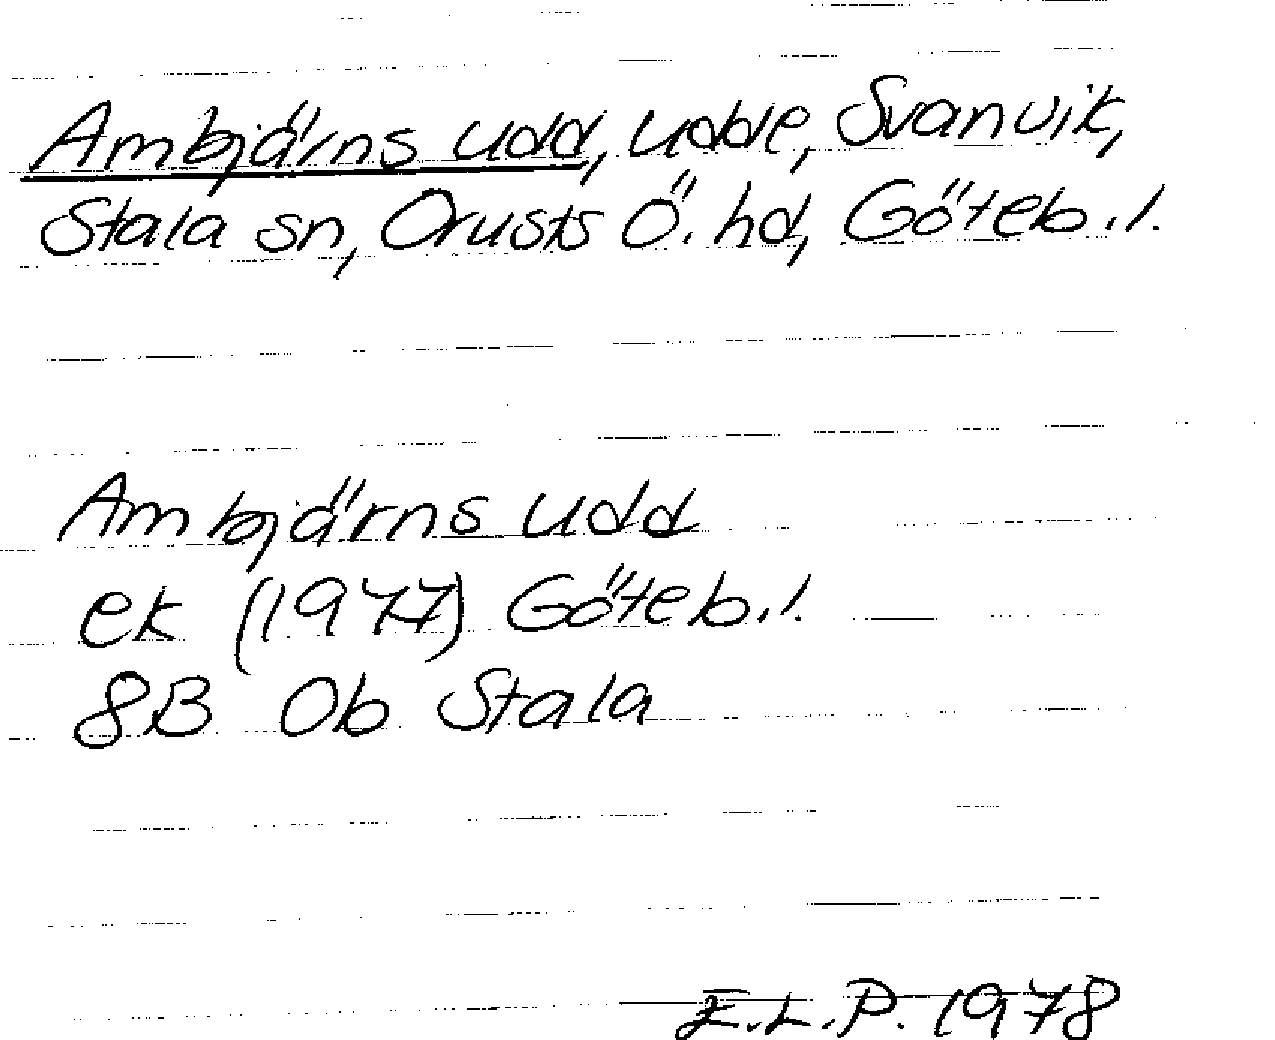 Ambjärns udd, udde, Svanvik,
Stala sn, Orusts Ö. hd, Göteb.l.
Ambjärns udd
ek (1977) Göteb.l.
8B 0b Stala
E.L.P. 1978